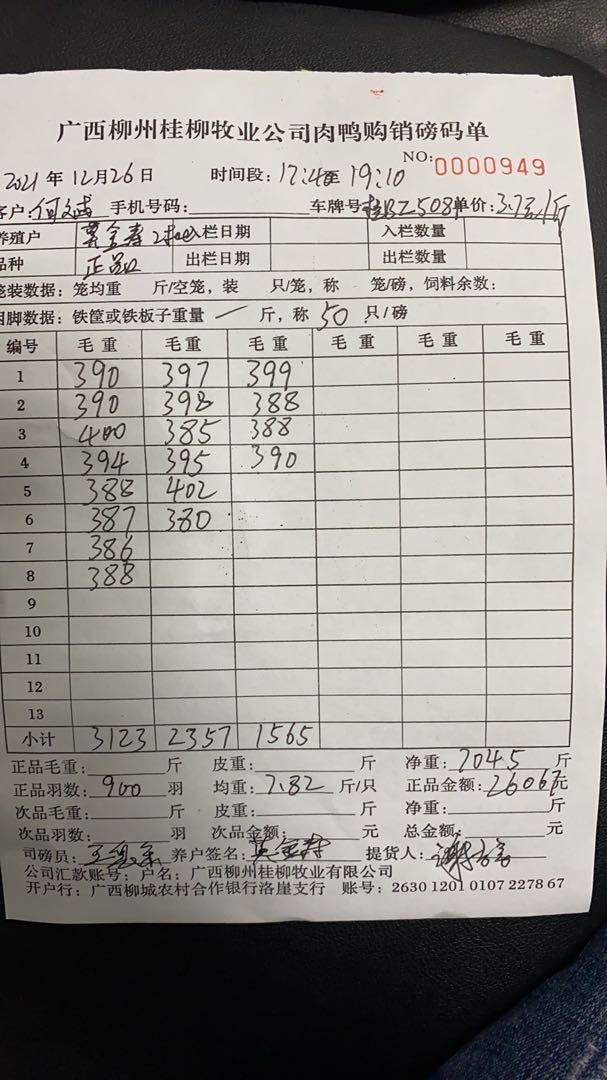 广西柳州桂柳牧业公司肉鸭购销磅码单
NO: 0000949
2021 年 12月26日 时间段: 17:4 至 19:10
客户: 何 手机号码: 车牌号 桂BZ508 单价: 3.7元/斤
养殖户 入栏日期 入栏数量
品种 正品 出栏日期 出栏数量
笼装数据: 笼均重 斤/空笼, 装 只/笼, 称 笼/磅, 饲料余数:
捆脚数据: 铁筐或铁板子重量 一 斤, 称 50 只/磅
编号 毛重 毛重 毛重 毛重 毛重 毛重
1 390 397 399
2 390 398 388
3 400 385 388
4 394 395 390
5 388 402
6 387 380
7 386
8 388
9
10
11
12
13
小计 3123 2357 1565
正品毛重: 斤 皮重: 斤 净重: 7045 斤
正品羽数: 900 羽 均重: 7.82 斤/只 正品金额: 26067 元
次品毛重: 斤 皮重: 斤 净重: 斤
次品羽数: 羽 次品金额: 元 总金额: 元
司磅员: 养户签名: 提货人:
公司汇款账号: 户名: 广西柳州桂柳牧业有限公司
开户行: 广西柳城农村合作银行洛崖支行 账号: 2630 1201 0107 2278 67